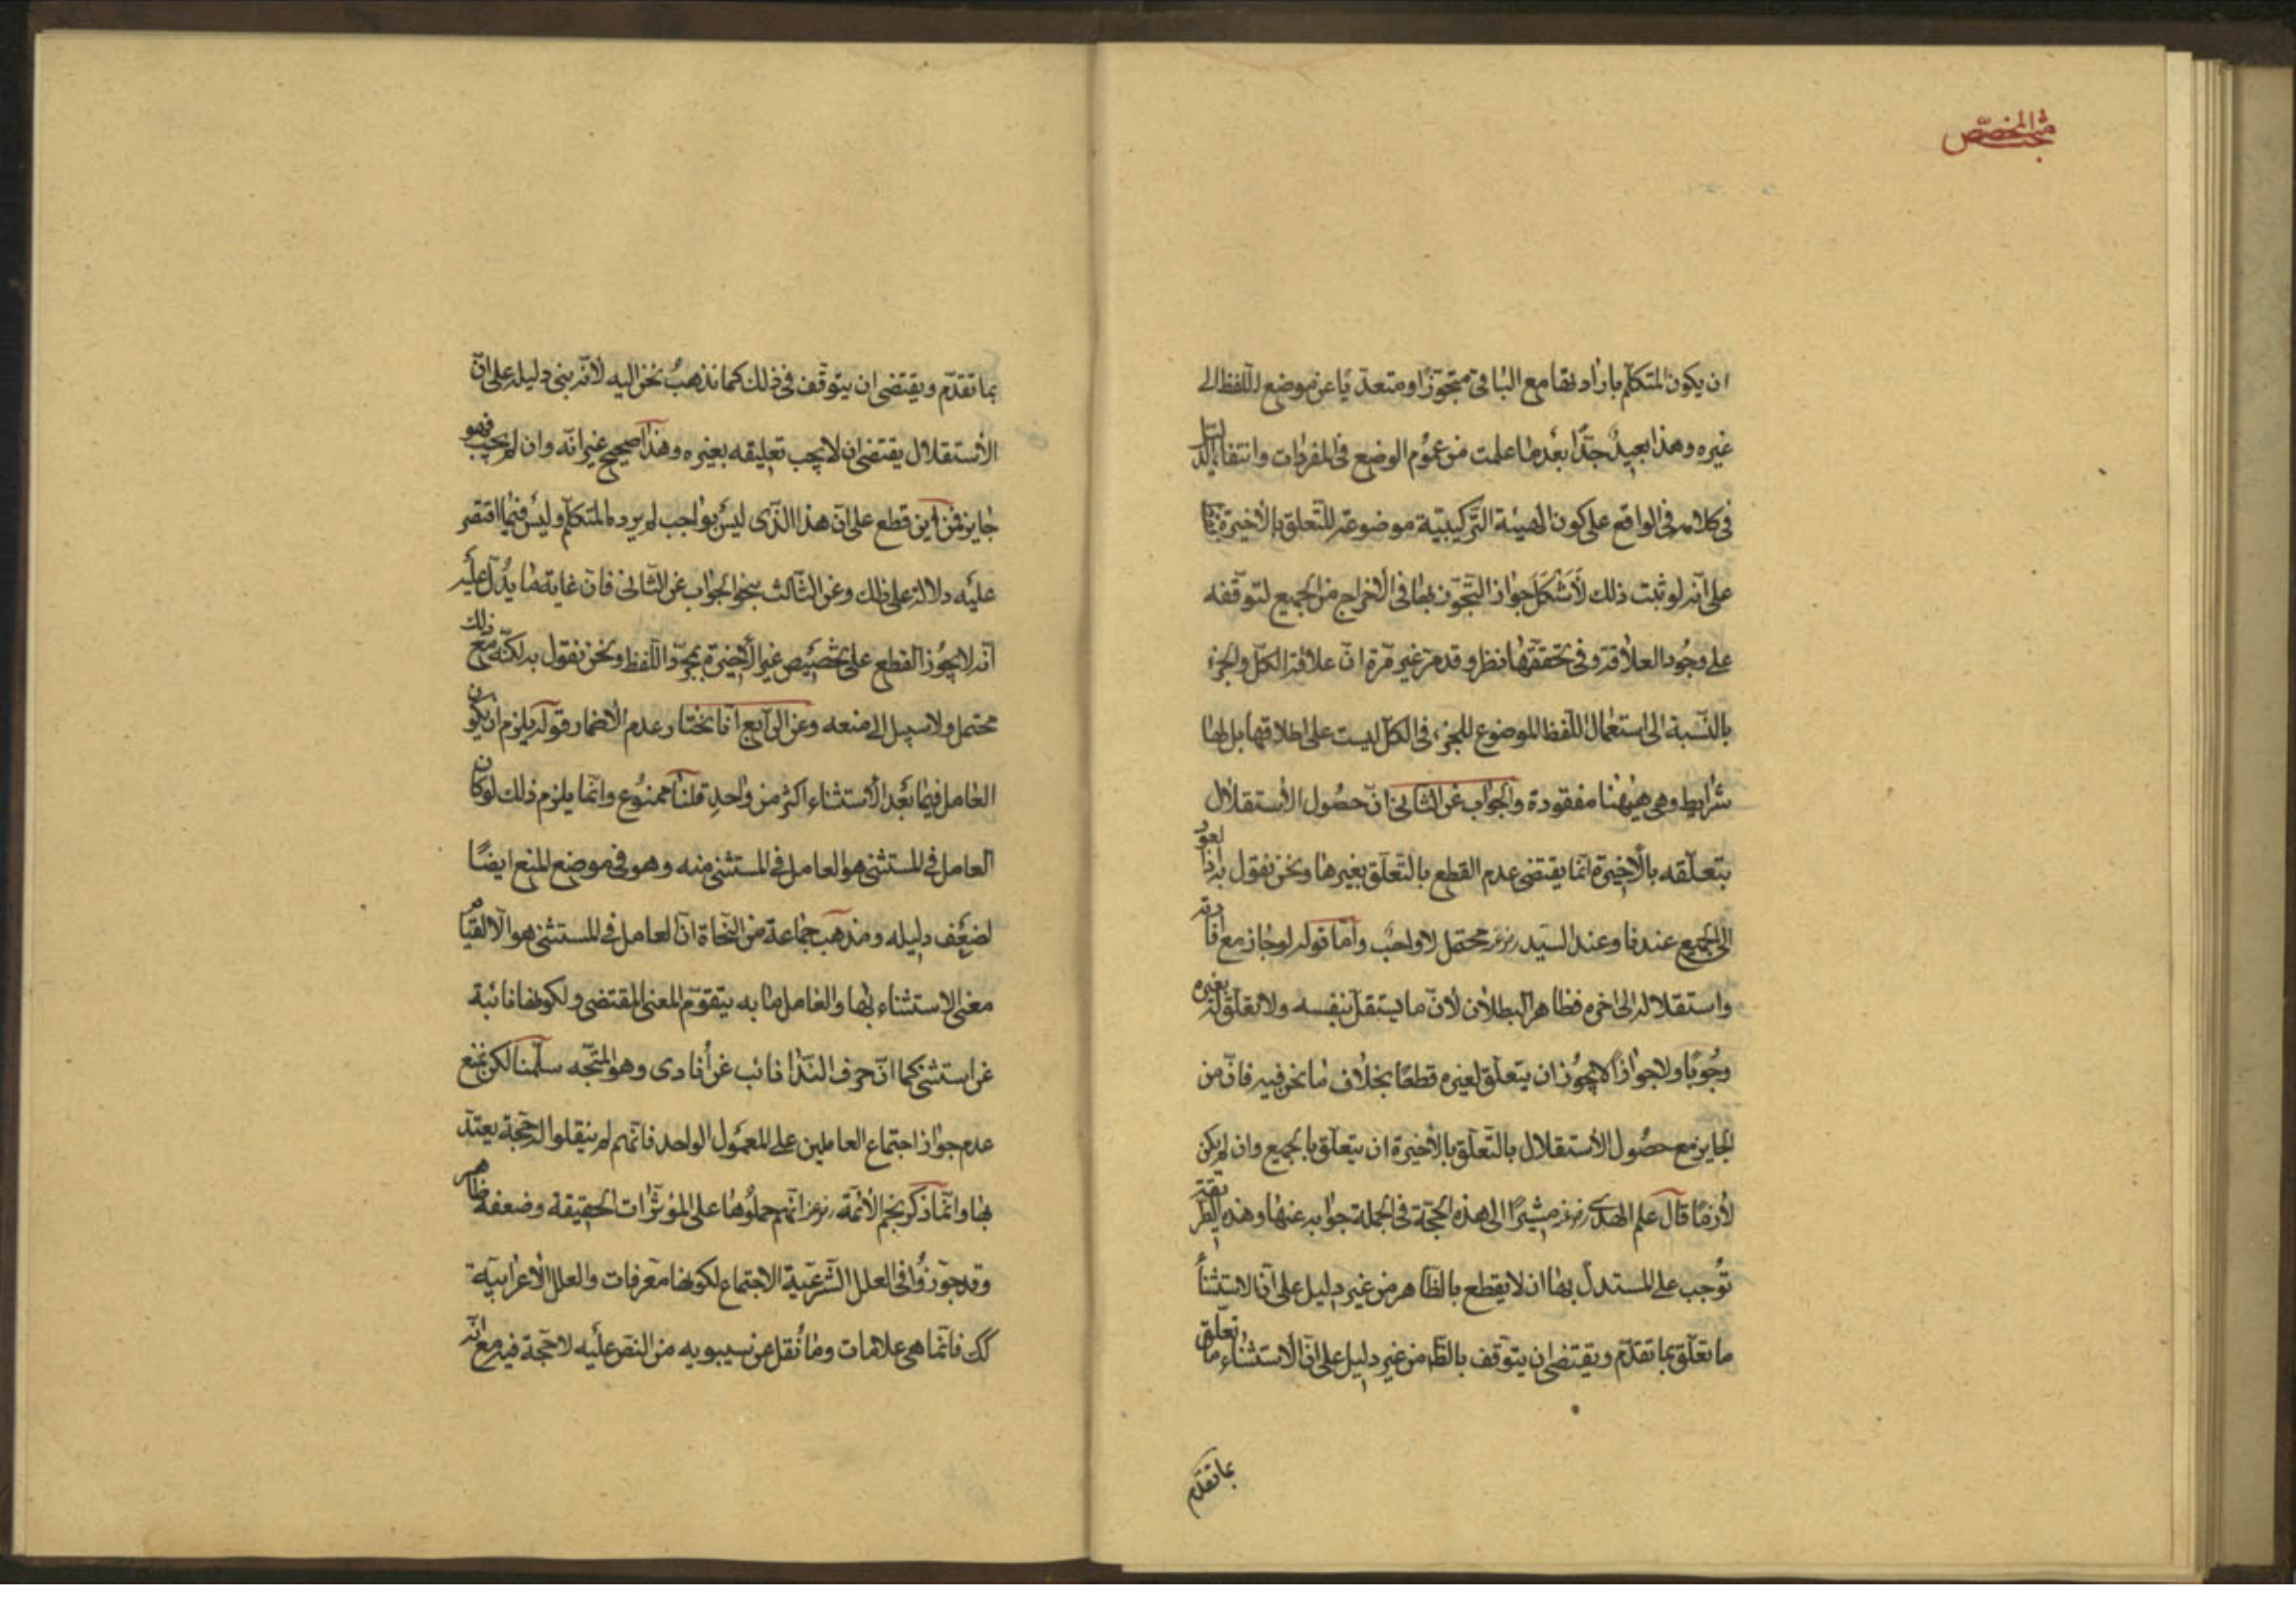 مبحث المخصّص
ان يكون المتكلّم بارادتها مع الباقى متجوّزا و متعدّيا عن موضع اللفظ الى
غيره و هذا بعيد جدّا بعد ما علمت من عموم الوضع فى المفردات و انتفاء الدّلالة
فى كلامه فى الواقع على كون الهيئة التّركيبيّة موضوعة للتّعلق بالاخيرة
على انّه لو ثبت ذلك لأشكل جواز التّجوّز بها فى الاخراج من الجميع لتوقّفه
على وجود العلاقة و فى تحقّقها نظر و قد مرّ غير مرّة انّ علاقة الكلّ و الجزء
بالنّسبة الى استعمال اللّفظ الموضوع للجزء فى الكلّ ليست على اطلاقها بل لها
شرايط و هى هيهنا مفقودة و الجواب عن الثّانى انّ حصول الأستقلال
بتعلّقه بالأخيرة انّما يقتضى عدم القطع بالتّعلّق بغيرها و نحن نقول به اذ العود
الى الجميع عندنا و عند السيّد رض محتمل لا واجب و أمّا قوله لو جاز مع افادته
و استقلاله الى اخره فظاهر البطلان لأنّ ما يستقلّ بنفسه و لا تعلّق له بغيره
وجوبا و لا جوازا لا يجوز ان يتعلّق بغيره قطعا بخلاف ما نحن فيه فانّ من
الجايز مع حصول الأستقلال بالتّعلّق بالأخيرة ان يتعلّق بالجميع و ان لم يكن
لازما قال علم الهدى رض مشيرا الى هذه الحجّة فى الجملة جوابه عنها و هذه الطّريقة
توجب على المستدلّ بها ان لا يقطع بالظّاهر من غير دليل على انّ الاستثناء
ما تعلّق بما تقدّم و يقتضى ان يتوقف بالظّا من غير دليل على انّ الأستثناء ما تعلّق
بما تقدّم
بما تقدّم و يقتضى ان يتوقّف فى ذلك كما نذهب نحن اليه لأنّه بنى دليله على انّ
الأستقلال يقتضى ان لا يجب تعليقه بغيره و هذا صحيح غير انّه و ان لم يجب فهو
جايز فمن اين قطع على انّ هذا الذّى ليس بواجب لم يرده المتكلّم و ليس فيما اقتصر
عليه دلالة على ذلك و عن الثّالث بنحو الجواب عن الثّانى فانّ غاية ما يدلّ عليه
انّه لا يجوز القطع على تخصيص غير الأخيرة بمجرّد اللّفظ و نحن نقول به لكنّه مع ذلك
محتمل و لا سبيل الى منعه و عن الرّابع انّا نختار عدم الأضمار قوله يلزم ان يكون
العامل فيما بعد الأستثناء اكثر من واحد قلنا ممنوع و انّما يلزم ذلك لو كان
العامل فى المستثنى هو العامل فى المستثنى منه و هو فى موضع المنع ايضا
لضعف دليله و مذهب جماعة من النّحاة انّ العامل فى المستثنى هو الّا لقيام
معنى الاستثناء بها و العامل ما به يتقوّم المعنى المقتضى و لكونها نائبة
عن استثنى كما انّ حرف النّدا نائب عن أنادى و هو المتّجه سلّمنا لكن نمنع
عدم جواز اجتماع العاملين على المعمول الواحد فانّهم لم ينقلوا له حجّة يعتدّ
بها و انّما ذكر نجم الأئمّة رض انّهم حملوها على المؤثّرات الحقيقة و ضعفه ظاهر
و قد جوّزوا فى العلل الشّرعيّة الاجتماع لكونها معرفات و العلل الأعرابيّة
كك فانّما هى علامات و ما نقل عن سيبويه من النصّ عليه لا حجّة فيه مع انّه